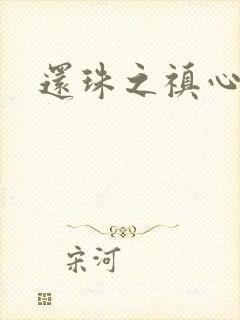 還珠之禛心
宋河